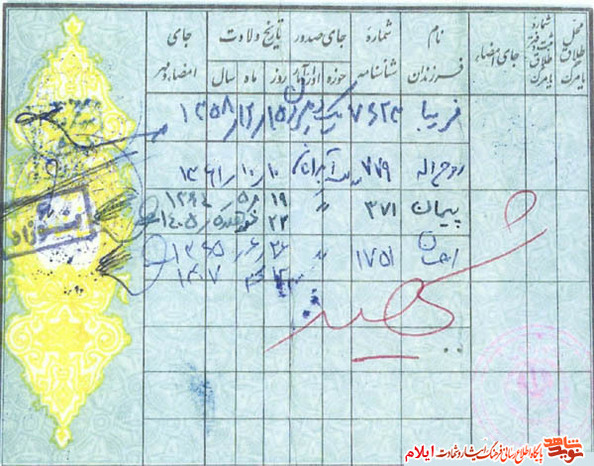 محل طلاق یا مرگ
شماره ثبت دفتر طلاق یا مرگ
جای امضاء
نام فرزندان
شماره شناسنامه
جای صدور
حوزه
اداره آمار
تاریخ ولادت
روز ماه سال
جای امضاء و مهر
فریبا ۱۵ ۱۲ ۱۳۵۸
روح اله ۷۷۹ ۱۰ ۱۰ ۱۳۶۱
پیمان ۳۷۱ ۱۹ ۵ ۱۳۶۴
۲۳ ۱۴۰۵
احسان ۱۷۵۱ ۲۶ ۶ ۱۳۶۵
۱۴۰۷
شهید
نوید شاهد
پایگاه اطلاع رسانی فرهنگ ایثار و شهادت ایلام